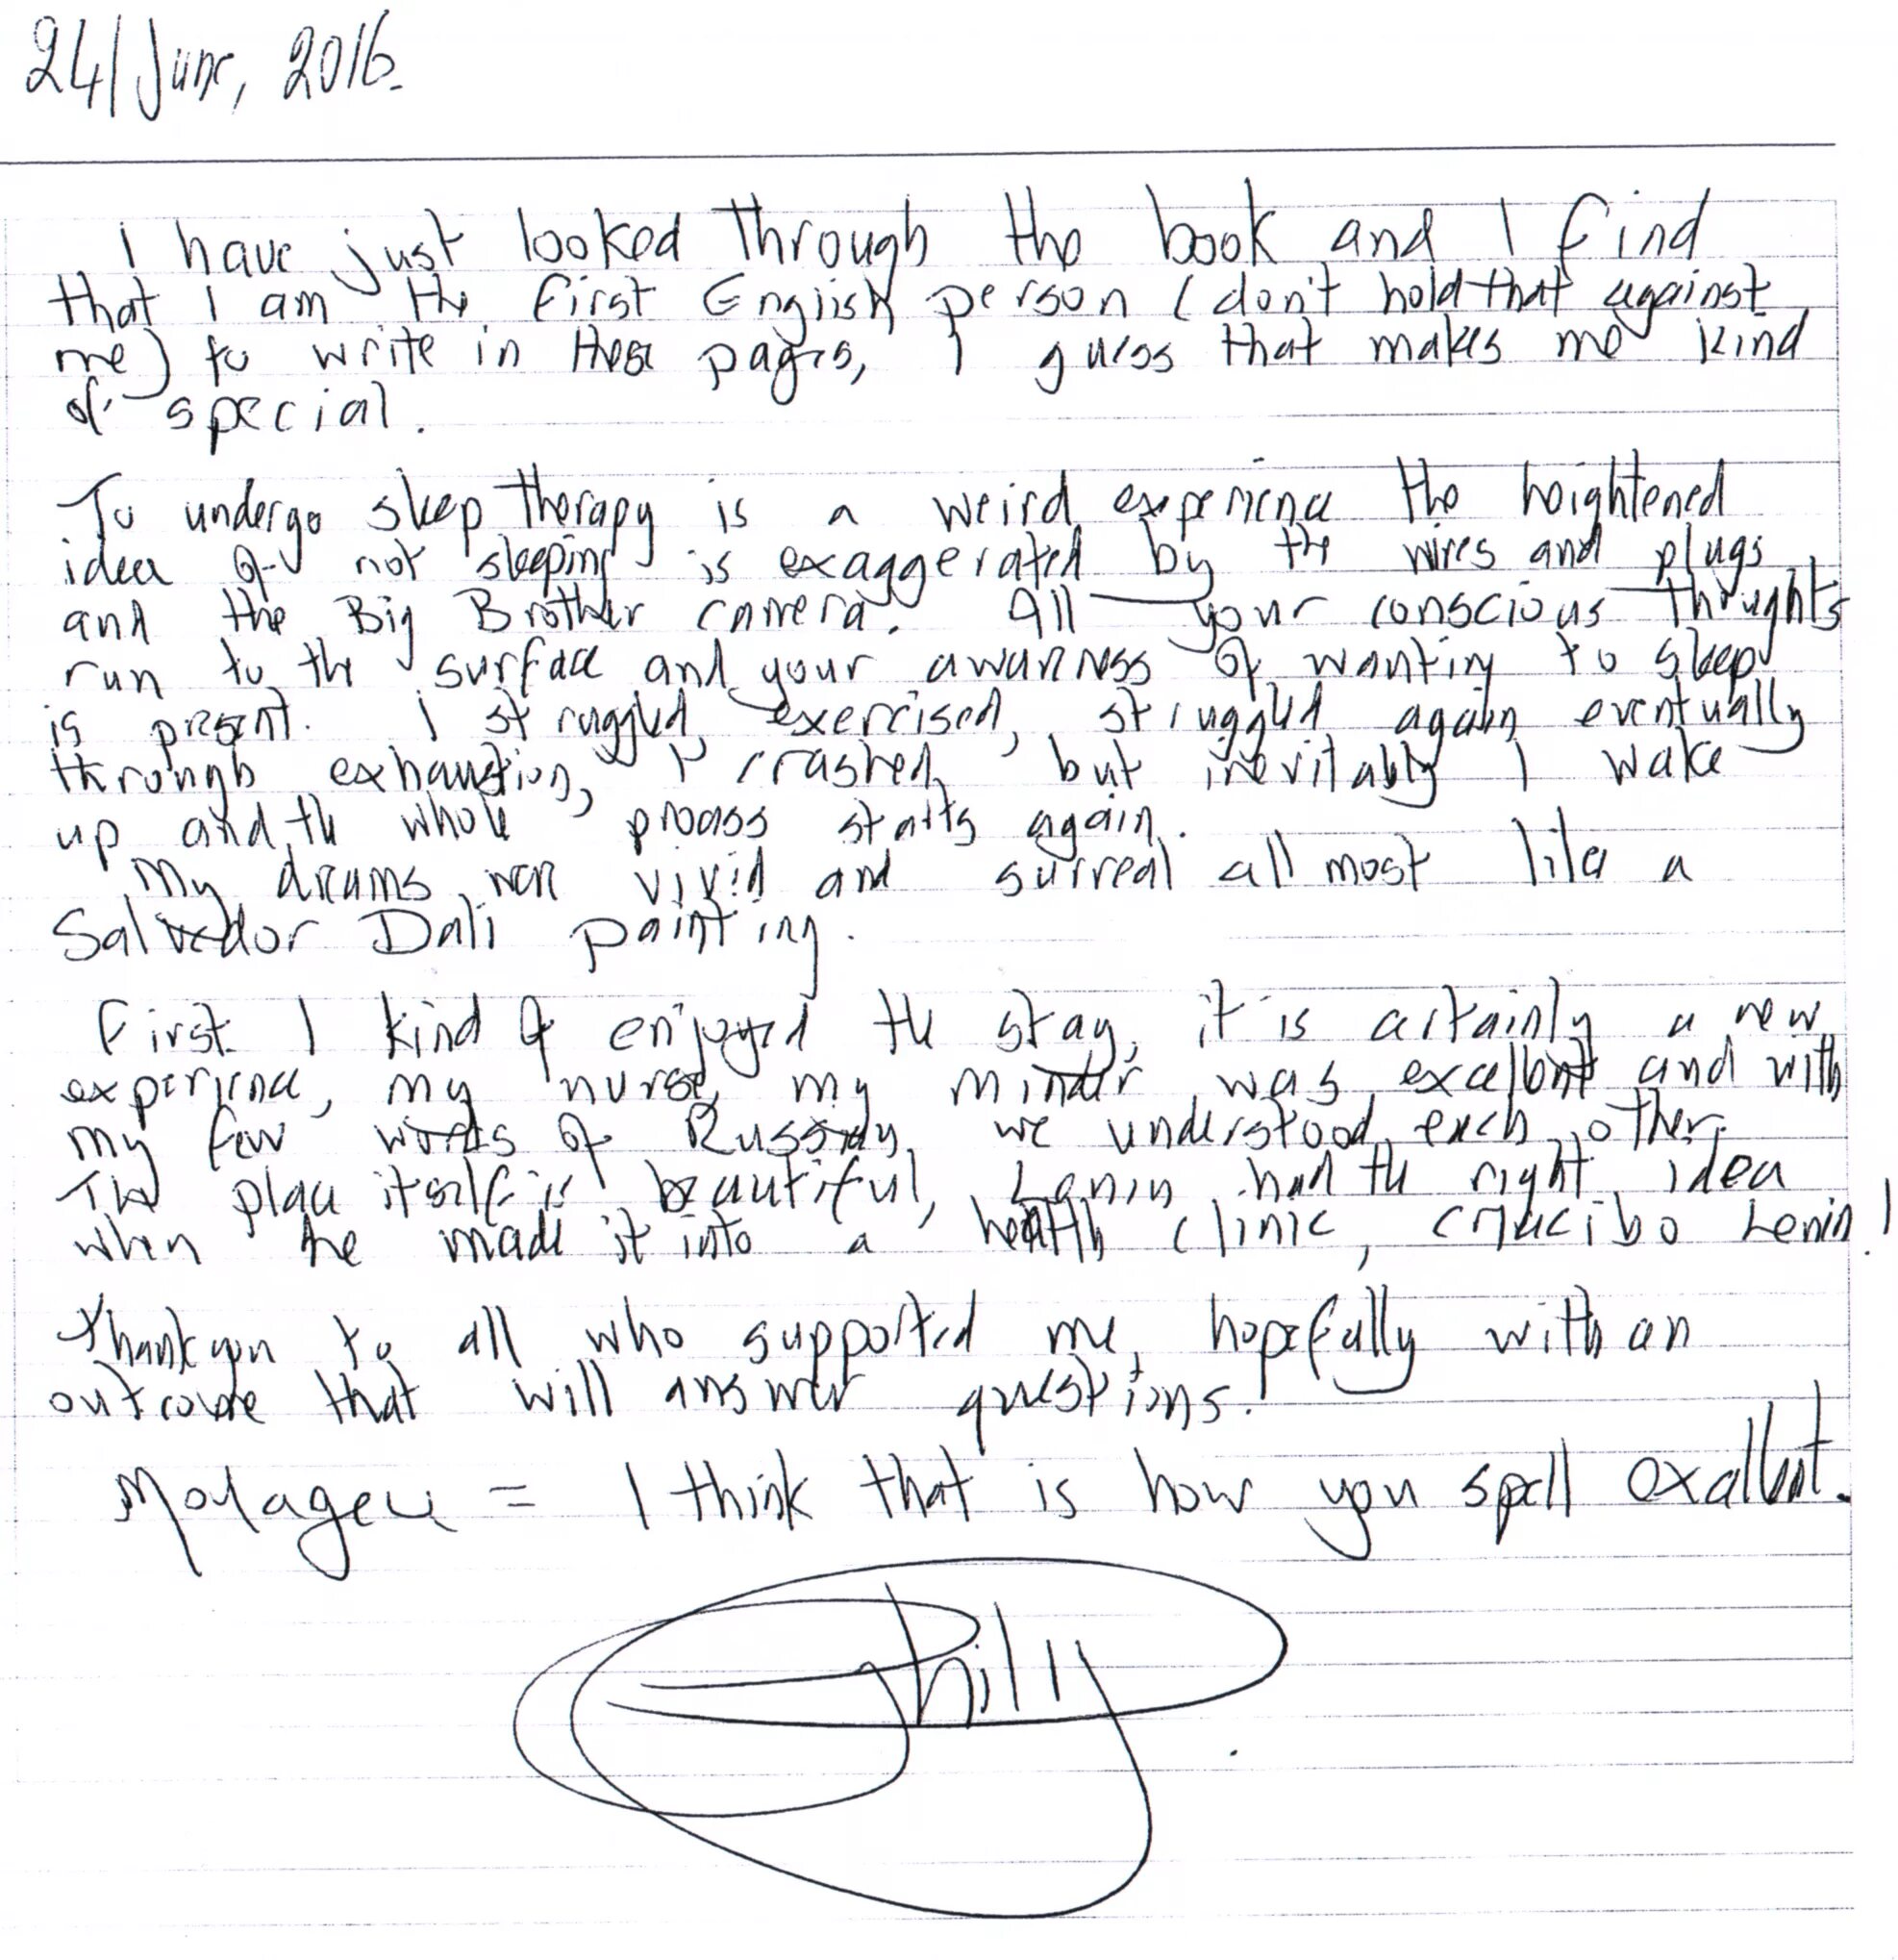 24/June, 2016.
I have just looked through the book and I find
that I am the first English person (don't hold that against
me) to write in these pages, I guess that makes me kind
of special.
To undergo sleep therapy is a weird experience the heightened
idea of not sleeping is exaggerated by the wires and plugs
and the Big Brother camera. All your conscious thoughts
run to the surface and your awareness of wanting to sleep
is present. I struggled, exercised, struggled again eventually
through exhaustion, I crashed, but inevitably I wake
up and the whole process starts again.
My dreams were vivid and surreal all most like a
Salvador Dali painting.
First I kind of enjoyed the stay, it is certainly a new
experience, my nurse, my minder was excellent and with
my few words of we understood each other.
The place itself is beautiful, Lenin had the right idea
when he made it into a health clinic, cnacibo Lenin!
Thank you to all who supported me, hopefully with an
outcome that will answer questions.
= I think that is how you spell excellent.
Philly